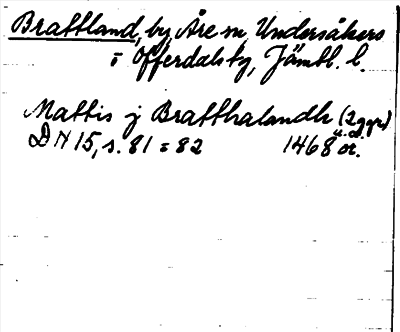 Brattland, by, Åre sn, Undersåkers
o Offerdals tg, Jämtl. l.
Mattis j Bratthalandh (2 ggr)
DN 15, s. 81 = 82 1468 u.d. or.